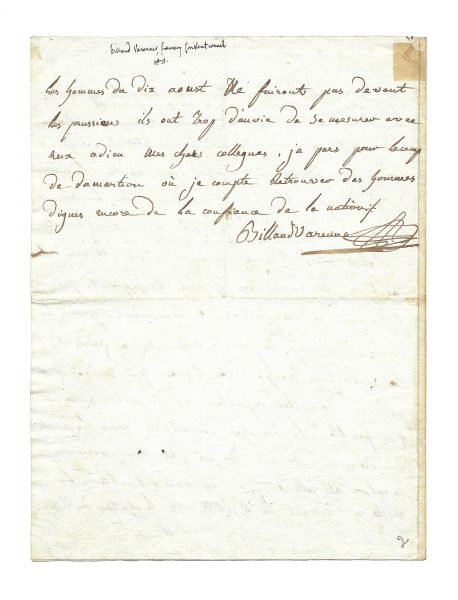 Billaud Varennes, fameux Conventionnel
les hommes du dix aoust Ne fuironts pas devant
les prussiens ils ont trop d'anvie de se mesurer avec
eux adieu mes chers collegues, je pars pour le camp
de damartin où je compte retrouver des hommes
dignes encore de la confiance de la nation ./.
Billaud Varenne
2